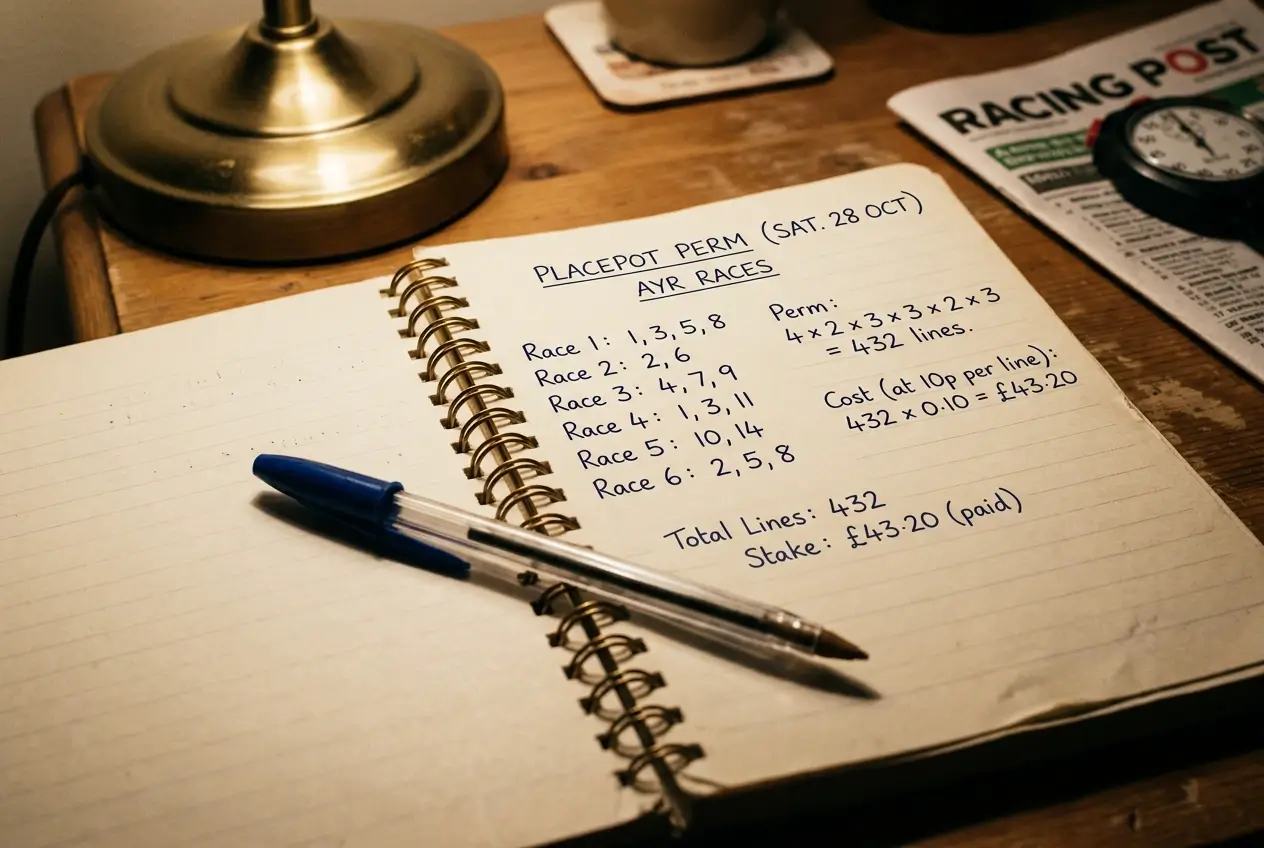 PLACEPOT PERM (SAT. 28 OCT)
AYR RACES
Race 1: 1, 3, 5, 8
Race 2: 2, 6
Race 3: 4, 7, 9
Race 4: 1, 3, 11
Race 5: 10, 14
Race 6: 2, 5, 8
Perm:
4 x 2 x 3 x 3 x 2 x 3
= 432 lines.
Cost (at 10p per line):
432 x 0.10 = £43.20
Total Lines: 432
Stake: £43.20 (paid)
RACING POST